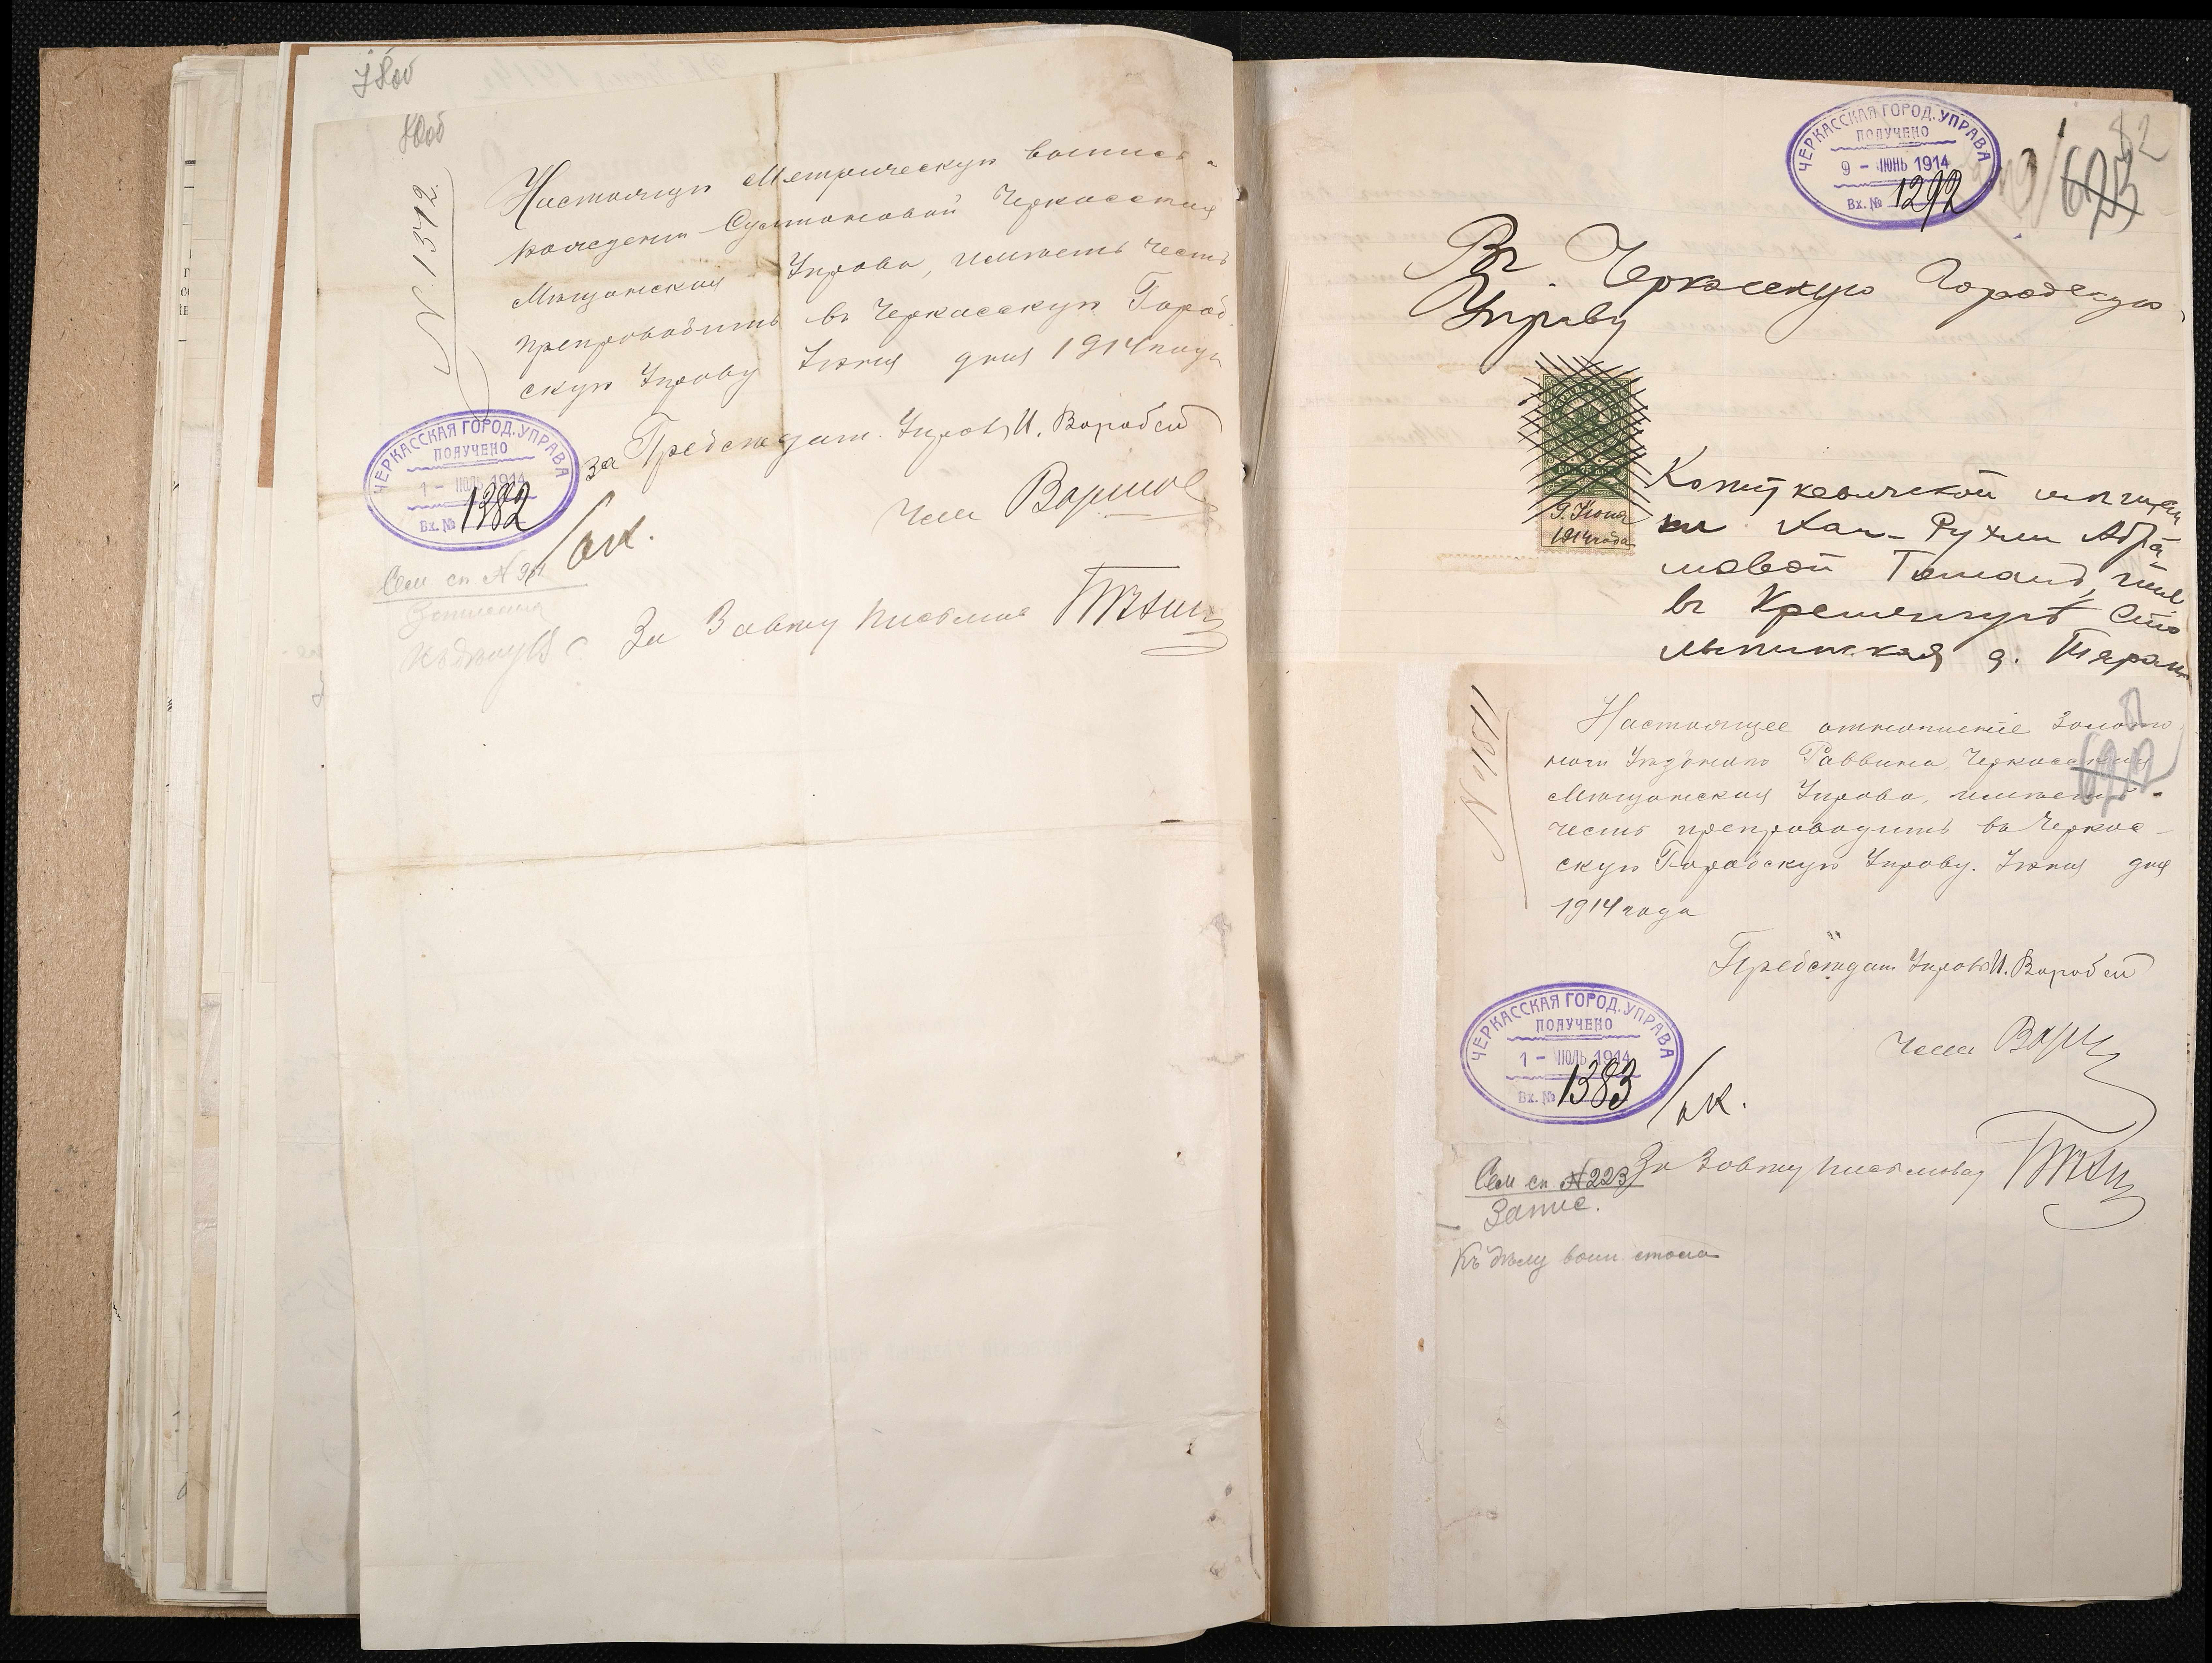 N 1372
Настоящую Метрическую выпись о
рождении Султановой Черкасская
Мѣщанская Управа, имѣетъ честь
препроводить въ Черкасскую Город-
скую Управу Іюня дня 1914 года
За Предсѣдат. Управы И. Воробей
Член
ЧЕРКАССКАЯ ГОРОД. УПРАВА
ПОЛУЧЕНО
1 - ИЮЛЬ 1914
Вх. № 1382
/ок.
Сем сп N
За Завѣд письмов
ЧЕРКАССКАЯ ГОРОД. УПРАВА
ПОЛУЧЕНО
9 - ИЮНЬ 1914
Вх. № 1292
82
673
Въ Черкасскую Городскую
Управу
9. Июня
1914 года
мѣщан
ки Хаи-Рухли Абра
мовой жив
въ Кременчугѣ Сто
лыпинская д.
N 1511
Настоящее отношеніе Золото
ноши Уѣзднаго Раввина, Черкасская
Мѣщанская Управа, имѣетъ
честь препроводить въ Черкас-
скую Городскую Управу. Іюня дня
1914 года
Предсѣдат Управы И. Воробей
Член
ЧЕРКАССКАЯ ГОРОД. УПРАВА
ПОЛУЧЕНО
1 - ИЮЛЬ 1914
Вх. № 1383
/ок.
Сем сп N 223
За Завѣд письмовод
Запис.
Къ дѣлу воин стола